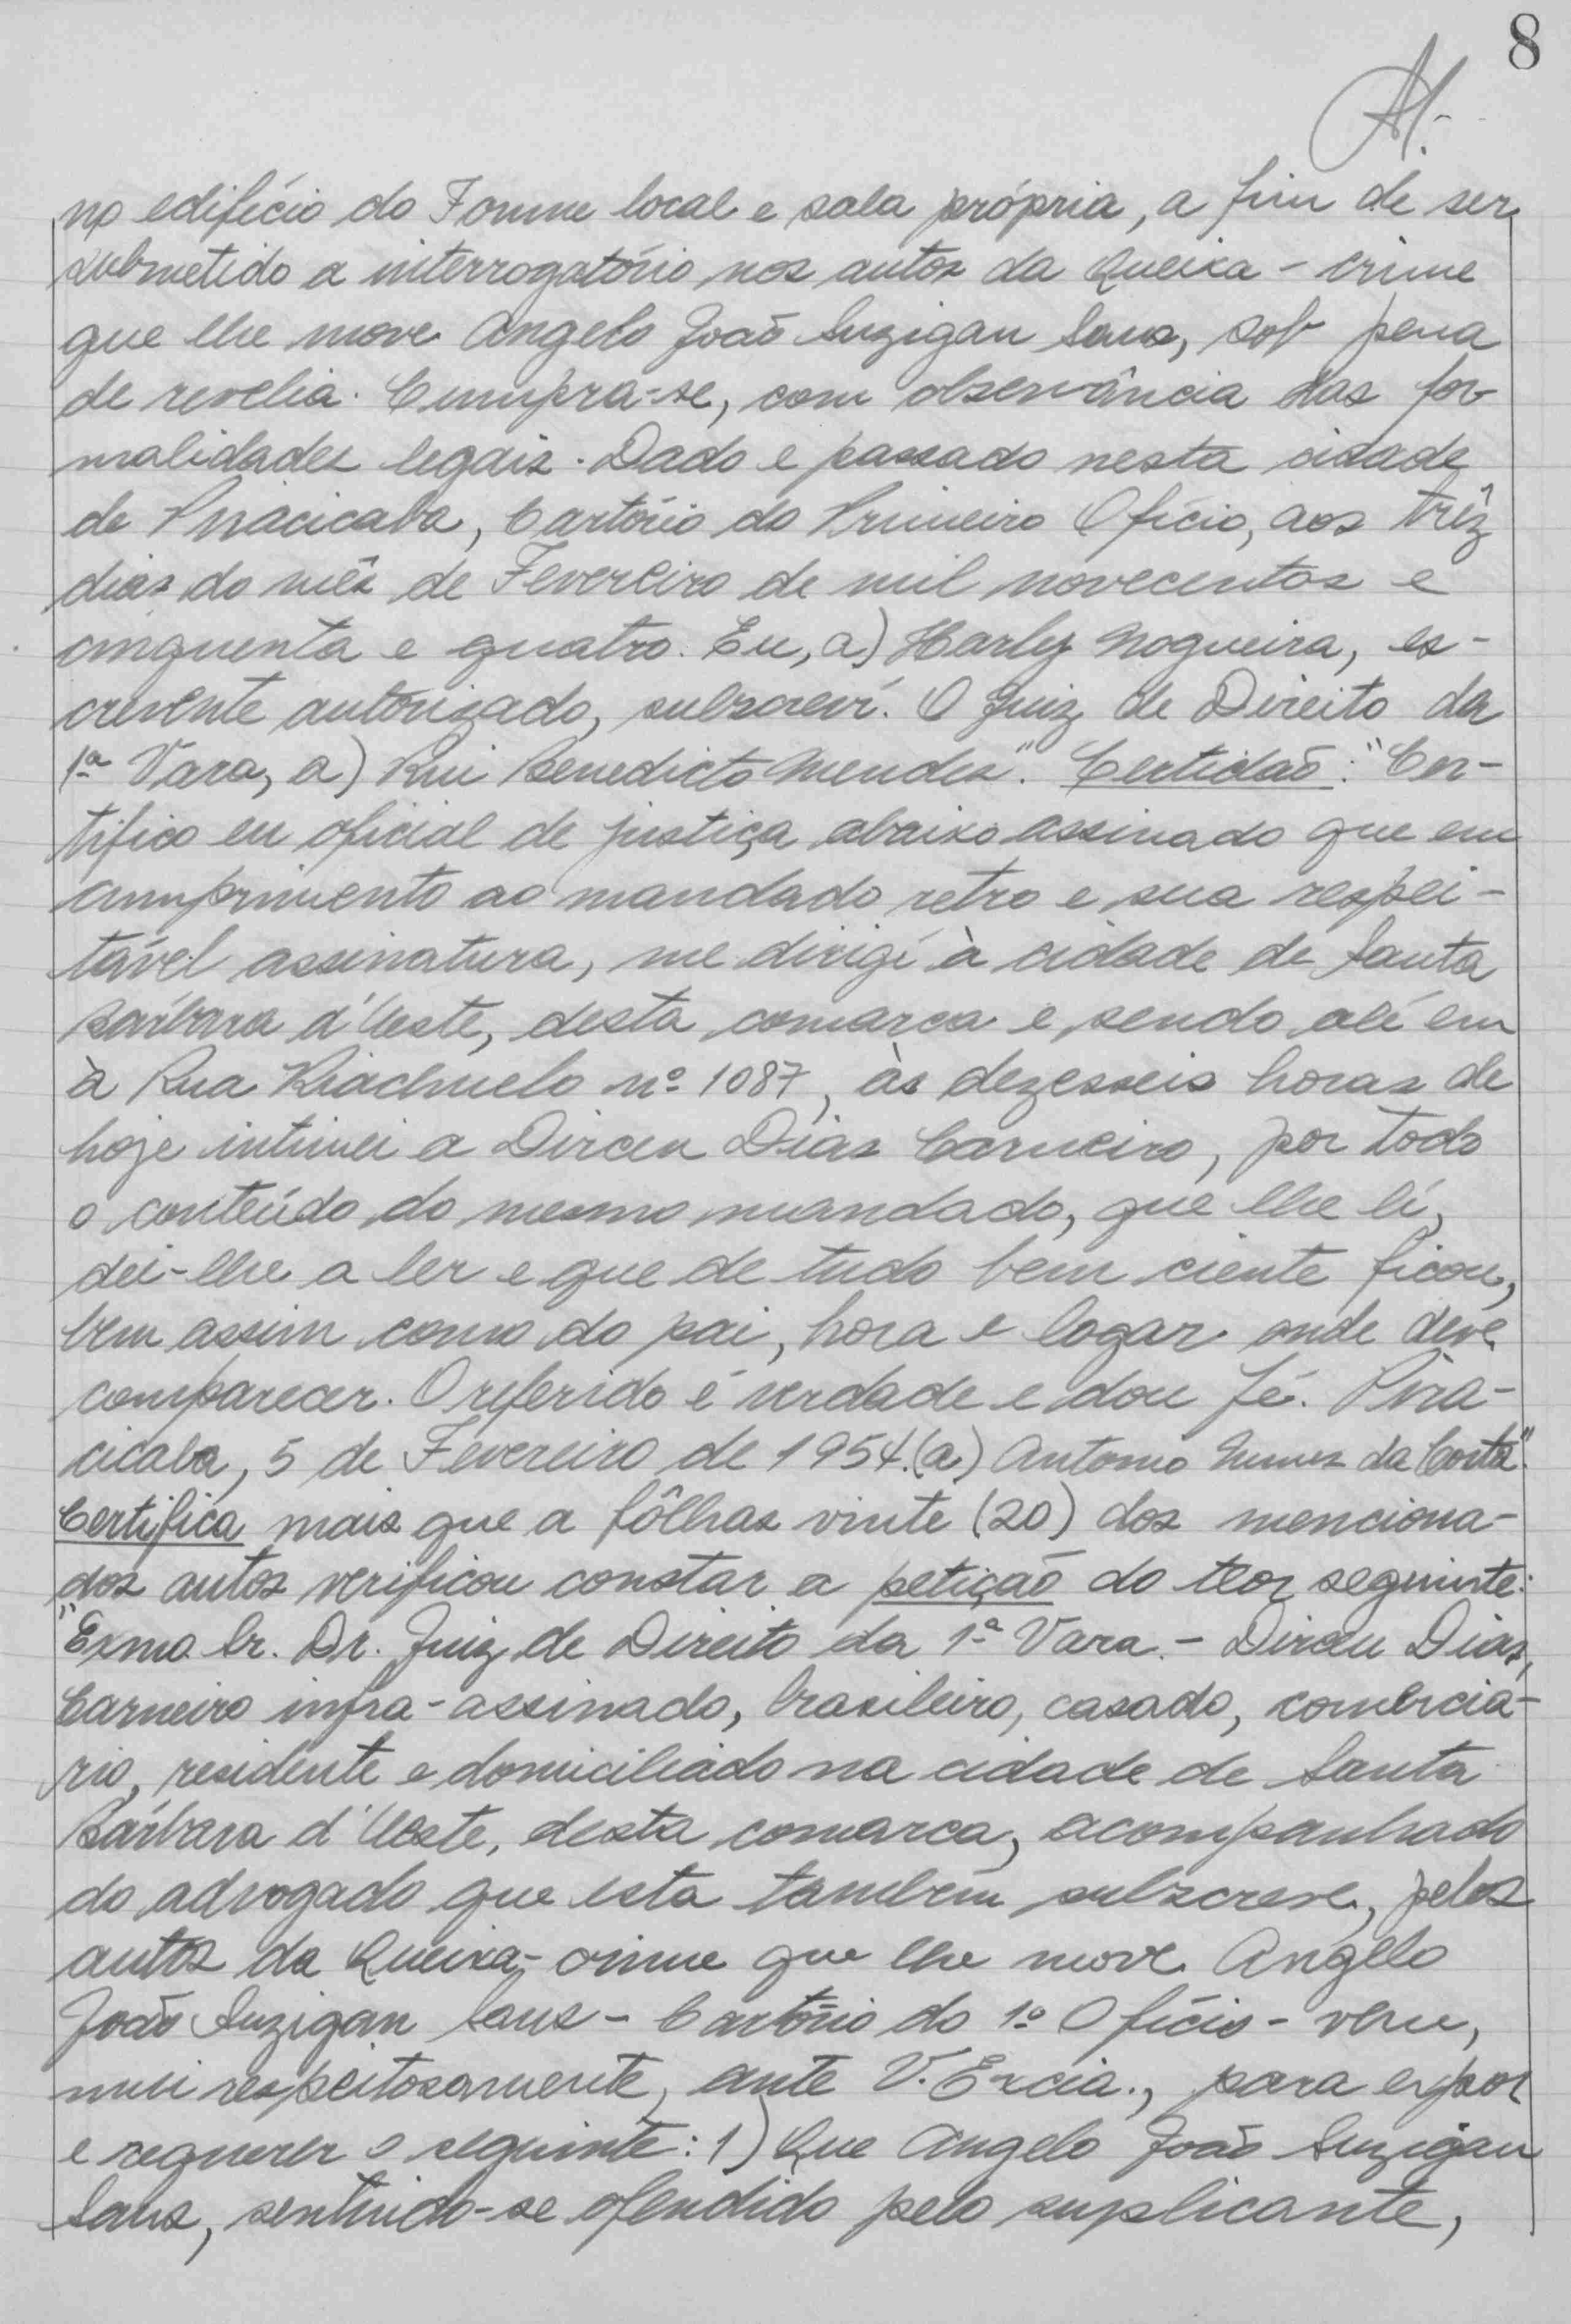 8
no edifício do Forum local e sala própria, a fim de ser
submetido a interrogatório nos autos da Queixa-crime
que lhe move Angelo João Suzigan Sans, sob pena
de revelia. Cumpra-se, com observância das for
malidades legais. Dado e passado nesta cidade
de Piracicaba, Cartório do Primeiro Ofício, aos três
dias do mês de Fevereiro de mil novecentos e
cinquenta e quatro. Eu, a) Harley Nogueira, es-
crevente autorizado, subscreví. O Juiz de Direito da
1ª Vara, a) Rui Benedicto Mendes". Certidão: "Cer-
tifico eu oficial de justiça abaixo assinado que em
cumprimento ao mandado retro e sua respei-
tável assinatura, me dirigí à cidade de Santa
Bárbara d'Oeste, desta comarca e sendo alí em
à Rua Riachuelo nº 1087, às dezesseis horas de
hoje intimei a Dirceu Dias Carneiro, por todo
o conteúdo do mesmo mandado, que lhe lí,
dei-lhe a ler e que de tudo bem ciente ficou,
bem assim como do pai, hora e logar onde deve
comparecer. O referido é verdade e dou fé. Pira-
cicaba, 5 de Fevereiro de 1954. (a) Antonio Nunes da Costa".
Certifica mais que a fôlhas vinte (20) dos menciona-
dos autos verificou constar a petição do teor seguinte:
"Exmo. Sr. Dr. Juiz de Direito da 1ª Vara. - Dirceu Dias
Carneiro infra-assinado, brasileiro, casado, comerciá-
rio, residente e domiciliado na cidade de Santa
Bárbara d'Oeste, desta comarca, acompanhado
do advogado que esta também subscreve, pelos
autos da Queixa-crime que lhe move Angelo
João Suzigan Sans - Cartório do 1º Ofício - vem,
mui respeitosamente, ante V. Excia., para expor
e requerer o seguinte: 1) Que Angelo João Suzigan
Sans, sentindo-se ofendido pelo suplicante,